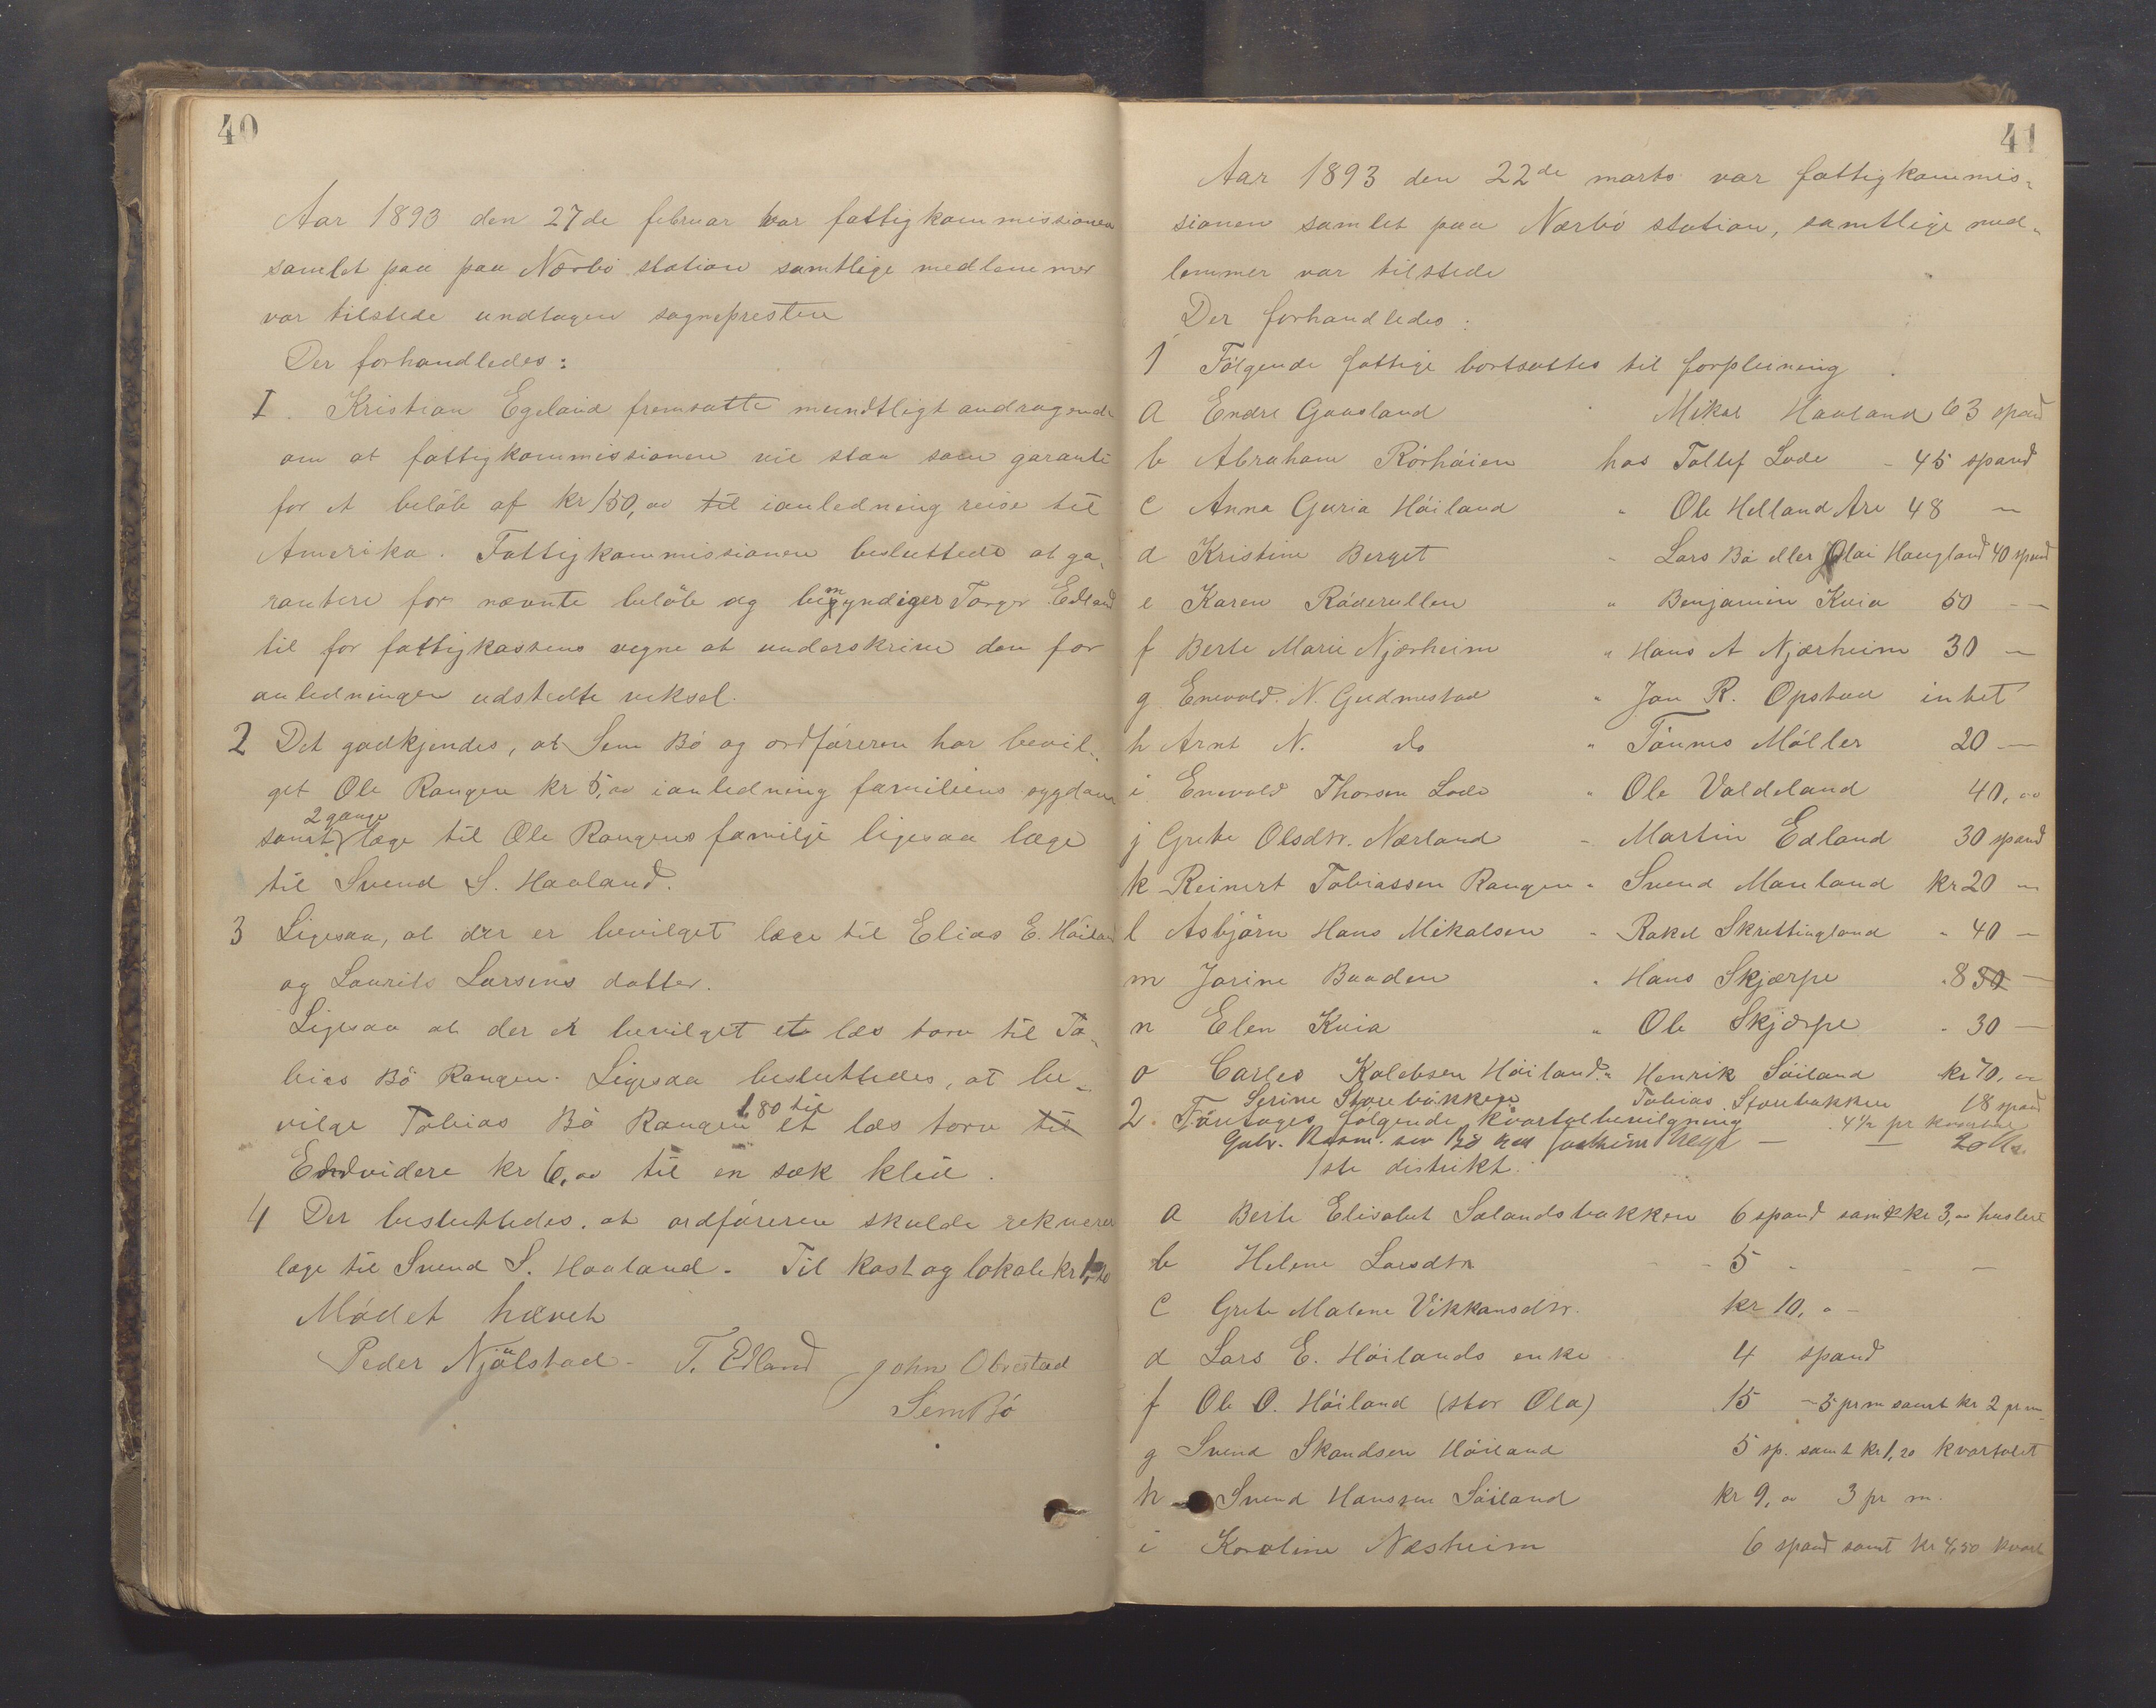 40
Aar 1893 den 27de februar var fattigkommissionen
samlet paa paa Nærbö station samtlige medlemmer
var tilstede undtagen sognepresten
Der forhandledes:
I. Kristian Egeland fremsatte mundtligt andragende
om at fattigkommissionen vil staa som garanti
for et beløb af kr 150,00 til ianledning reise til
Amerika. Fattigkommissionen besluttede at ga-
rantere for nævnte beløb og bemyndiger Torger Edland
til for fattigkassens vegne at underskrive den for
anledningen udstedte veksel.
2 Det godkjendes, at Sem Bö og ordføreren har bevil-
get Ole Rangen kr 5,00 ianledning familiens sygdom
samt 2 gange læge til Ole Rangens familje ligesaa læge
til Svend S. Haaland.
3 Ligesaa, at der er bevilget læge til Elias E. Höiland
og Laurits Larsens datter.
Ligesaa at der er bevilget et læs torv til To-
bias Bö Rangen. Ligesaa besluttedes, at be-
vilge Tobias Bö Rangen 1,80 til et læs torv til
Endvidere kr 6,00 til en sæk klid.
4 Der besluttedes, at ordføreren skulde rekvirere
læge til Svend S. Haaland. Til kost og lokale kr 1,20
Mødet hævet
Peder Njålstad - T. Edland John Obrestad
Sem Bö
41
Aar 1893 den 22de marts var fattigkommis-
sionen samlet paa Nærbö station, samtlige med-
lemmer var tilstede
Der forhandledes:
1 Følgende fattige bortsattes til forpleining
a Endre Gaasland Mikal Haaland 63 spand
b Abraham Rörhöien hos Tollef Lode - 45 spand
c Anna Guria Höiland " Ole Helland Are 48 —
d Kristine Berget " Lars Bö eller Olai Haugland 40 spand
e Karen Råderullen " Benjamin Kvia 50 —
f Berte Marie Njærheim " Hans A Njærheim 30 —
g Enevold. N. Gudmestad " Jon R. Opstad intet
h Arnt N. do " Tönnes Möller 20 —
i Enevold Thorsen Lode " Ole Valdeland 40,00
j Grete Olsdtr. Nærland - Martin Edland 30 spand
k Reinert Tobiassen Rangen " Svend Mauland kr 20 —
l Asbjörn Hans Mikalsen " Rakel Skrettingland " 40 —
m Jorine Baaden " Hans Skjærpe " 8 50 —
n Elen Kvia " Ole Skjærpe " 30 —
o Carles Kalebsen Höiland " Henrik Söiland kr 70,00
Serine Storebakken Tobias Storebakken 18 spand
2. Foretoges følgende kvartalbevilgning 4 1/2 pr kvartal
Gabr. Rasm. søn Bö ved Joakim — — 20 Kr.
1ste distrikt.
a Berte Elisabet Salandsbakken 6 spand samt kr 3,00 husleie
b Helene Larsdtr - - 5 - - —
c Grete Malene Vikkansdtr. kr 10,00
d Lars E. Höilands enke 4 spand
f Ole O. Höiland (stor Ola) 15 - 5 pr m samt kr 2 pr m
g Svend Skandsen Höiland 5 sp. samt kr 1,20 kvartalet
h Svend Hanssen Söiland kr 9,00 3 pr m.
i Karoline Næsheim 6 spand samt kr 4,50 kvart